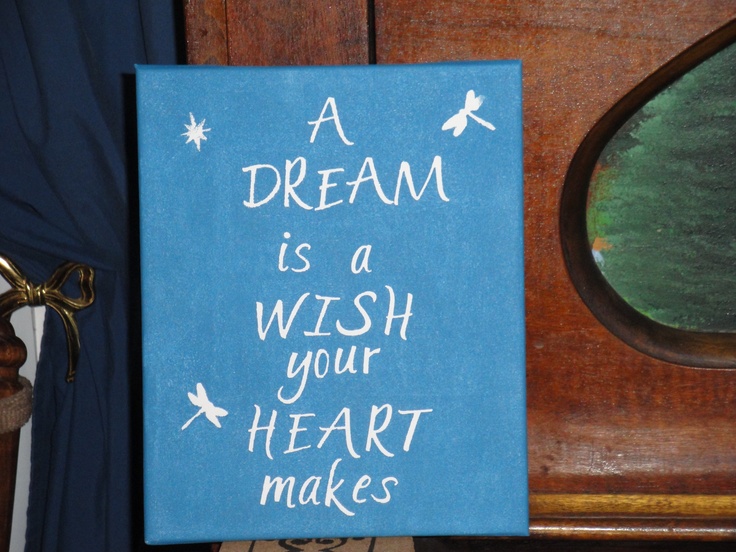 A
DREAM
is a
WISH
your
HEART
makes